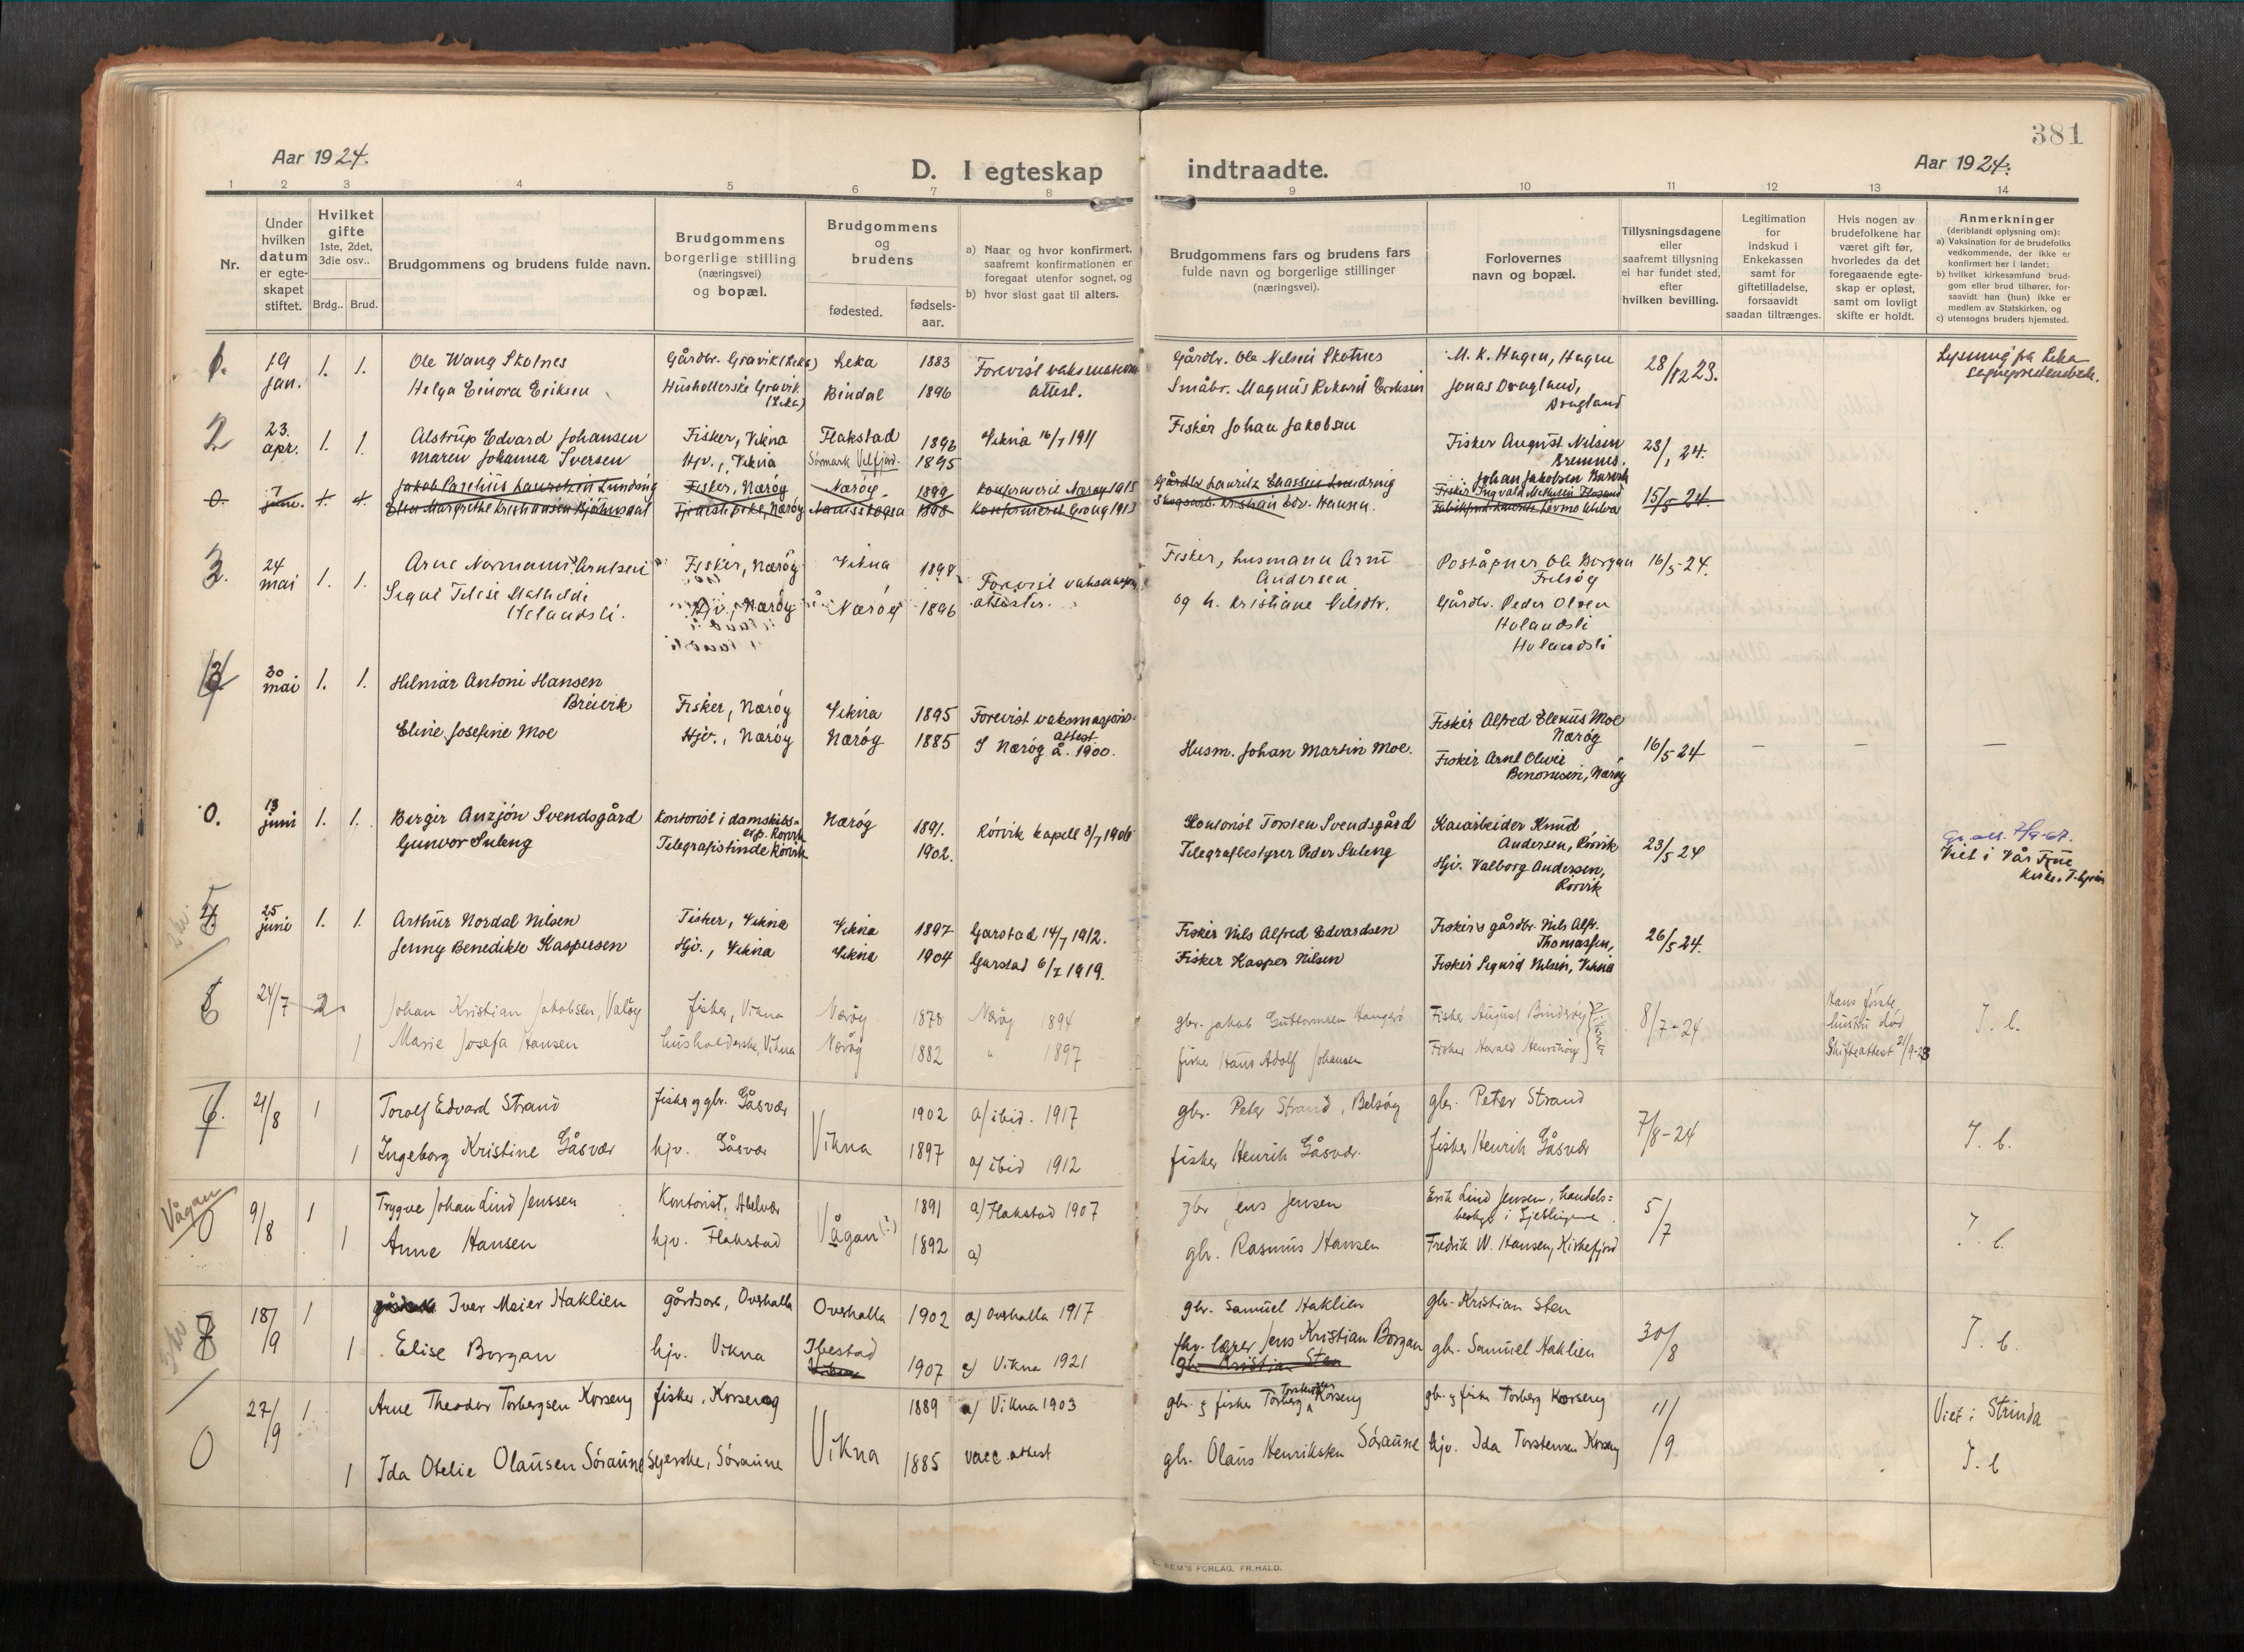 381
Aar 1924.
D. I egteskap indtraadte.
Aar 1924.
1 2 3 4 5 6 7 8 9 10 11 12 13 14
Nr.
Under hvilken datum er egteskapet stiftet.
Hvilket gifte
1ste, 2det, 3die osv..
Brdg.. Brud.
Brudgommens og brudens fulde navn.
Brudgommens borgerlige stilling (næringsvei) og bopæl.
Brudgommens og brudens
fødested. fødselsaar.
a) Naar og hvor konfirmert, saafremt konfirmationen er foregaat utenfor sognet, og
b) hvor sidst gaat til alters.
Brudgommens fars og brudens fars fulde navn og borgerlige stillinger (næringsvei).
Forlovernes navn og bopæl.
Tillysningsdagene eller saafremt tillysning ei har fundet sted, efter hvilken bevilling.
Legitimation for indskud i Enkekassen samt for giftetilladelse, forsaavidt saadan tiltrænges.
Hvis nogen av brudefolkene har været gift før, hvorledes da det foregaaende egteskap er opløst, samt om lovligt skifte er holdt.
Anmerkninger
(deriblandt oplysning om):
a) Vaksination for de brudefolks vedkommende, der ikke er konfirmert her i landet;
b) hvilket kirkesamfund brudgom eller brud tilhører, forsaavidt han (hun) ikke er medlem av Statskirken, og
c) utensogns bruders hjemsted.
1. 19 jan. 1. 1. Ole Wang Skotnes Gårdbr. Gravik (Leka) Leka 1883 Forevist vaksinasjons Gårdbr. Ole Nilsen Skotnes M. K. Hagen, Hagen 28/12 23. Lysning fra Leka
Helga Einora Eriksen Husholderske Gravik (Leka) Bindal 1896 attest. Småbr. Magnus Rikard Eriksen Jonas Dragland, Dragland
2 23. apr. 1. 1. Alstrup Edvard Johansen Fisker, Vikna Flakstad 1896 Vikna 16/7 1911 Fisker Johan Jakobsen Fisker August Nilsen Bremnes. 23/1 24.
Maren Johanna Iversen Hjv., Vikna Sørmark Velfjord. 1895 Johan Jakobsen
0. 7 juni. 1. 1. Jakob Fisker, Nærøy Nærøy 1899 Konfirmeret Nærøy 1915 Gårdbr. Lauritz Fisker Ingvald 15/5 24.
Ellen Margrethe Kristiansen Tjenestepike, Nærøy 1898 Konfirmeret Grong 1913 Skogsarb. Kristian Edv. Hansen.
3. 24 mai 1. 1. Arne Normann Arntsen Fisker, Nærøy Vikna 1898 Forevist vaksinasjons Fisker, husmann Arnt Andersen Poståpner Ole Borgan 16/5-24.
Signe Hjv., Nærøy Nærøy 1896 attester. og h. Kristiane Nilsdtr. Gårdbr. Peder Olsen
Holandsli. Holandsli
Holandsli
4 30 mai 1. 1. Hilmar Antoni Hansen
Breivik Fisker, Nærøy Vikna 1895 Forevist vaksinasjons- Fisker Alfred Elenus Moe
Nærøy
Eline Josefine Moe Hjv., Nærøy Nærøy 1885 attest. I Nærøy å. 1900. Husm. Johan Martin Moe. Fisker Arnt Oliver 16/5 24 — — —
Benonisen, Nærøy
0. 13 juni 1. 1. Birger Anzjón Svendsgård Kontorist i damskibs- exp. Rørvik Nærøy 1891. Rörvik kapell 8/7 1906 Kontorist Torsten Svendsgård Kaiarbeider Knud Andersen, Rörvik 23/5 24
Gunvor Suleng Telegrafistinde Rörvik 1902. Telegrafbestyrer Peder Suleng Hjv. Valborg Andersen, Rörvik Viet i Vår Frue
5 25 juni 1. 1. Arthur Nordal Nilsen Fisker, Vikna Vikna 1897 Garstad 14/7 1912. Fisker Nils Alfred Edvardsen Fisker & gårdbr. Nils Alfr. Thomassen, 26/5 24.
Jenny Benedikte Kaspersen Hjv., Vikna Vikna 1904 Garstad 6/7 1919. Fisker Kasper Nilsen Fisker Sigurd Nilsen, Vikna
6 24/7 2 Johan Kristian Jakobsen, Valøy fisker, Vikna Nærøy 1878 Nærøy 1894 gbr. Jakob Guttormsen Fisker August Vikna 8/7-24 Hans første hustru død I. b.
1 Marie Josefa Hansen husholderske, Vikna Nærøy 1882 " 1897 fisker Hans Adolf Johansen Fisker Harald Skifteattest 21/9-23
7 21/8 1 Torolf Edvard Strand fisker og gbr. Gåsvær 1902 a) ibid. 1917 gbr. Peter Strand, gbr. Peter Strand 7/8-24
1 Ingeborg Kristine Gåsvær hjv. Gåsvær Vikna 1897 a) ibid 1912 fisker Henrik Gåsvær. fisker Henrik Gåsvær I. b.
Vågan
0 9/8 1 Trygve Johan Lind Jenssen Kontorist, Abelvær Vågan (?) 1891 a) Flakstad 1907 gbr Jens Jensen Erik Lind Jensen, handels= 5/7
1 Anne Hansen hjv. Flakstad 1892 a) gbr. Rasmus Hansen Fredrik W. Hansen, Kirkefjord I. b.
8 18/9 1 Iver Meier Haklien gårdsarb, Overhalla Overhalla 1902 a) Overhalla 1917 gbr. Samuel Haklien gbr. Kristian Sten 30/8
1 Elise Borgan hjv. Vikna Ibestad 1907 Vikna 1921 fhv. lærer Jens Kristian Borgan gbr. Samuel Haklien I. b.
gbr. Kristian Sten
0 27/9 1 Arne Theodor Torbergsen Korseng fisker, Korseng Vikna 1889 a) Vikna 1903 gbr. & fisker Torberg Korseng gbr. & fisker Torberg Korseng 11/9 Viet i Strinda
1 Ida Otelie Olausen Söraune Syerske, Söraune 1885 vacc. attest gbr. Olaus Henriksen Söraune hjv. Ida Torstensen Korseng I. b
FORLAG, FR. HALD.